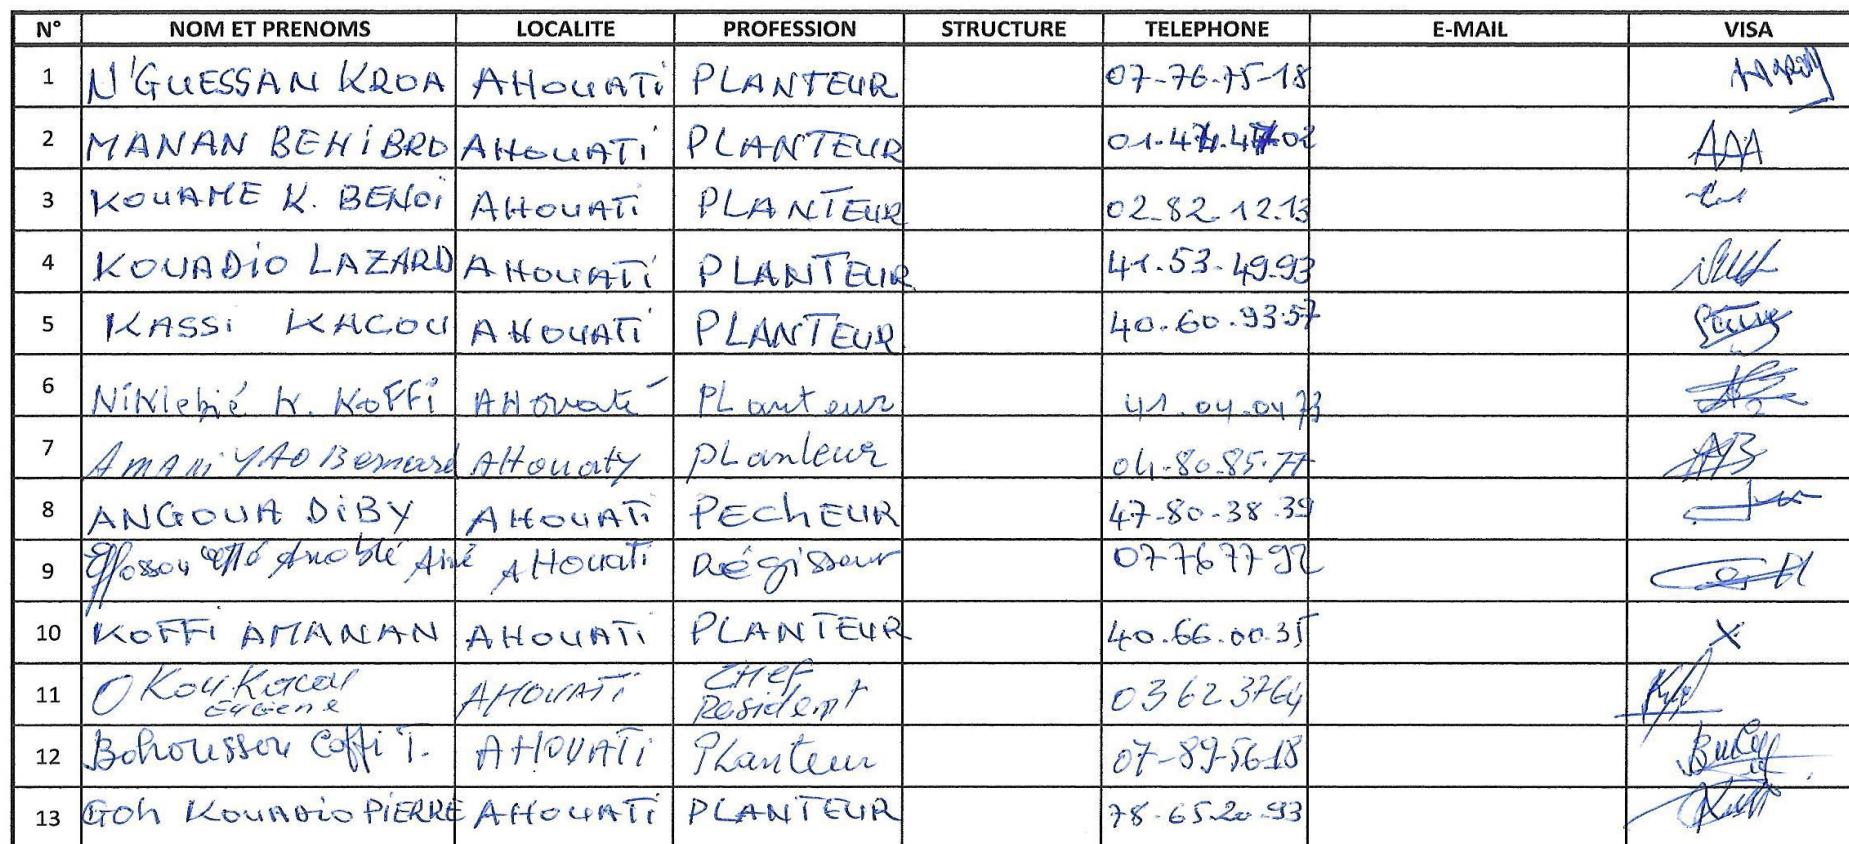 N° NOM ET PRENOMS LOCALITE PROFESSION STRUCTURE TELEPHONE E-MAIL VISA
1 N'GUESSAN KROA AHOUATi PLANTEUR 07-76-75-18
2 MANAN BEHiBRO AHOUATi PLANTEUR AAA
3 KOUAME K. BENOi AHOUATi PLANTEUR 02.82.12.13
4 KOUADiO LAZARD AHOUATi PLANTEUR 41.53.49.93
5 KASSi KACOU AHOUATi PLANTEUR 40.60.93.57
6 K. KOFFi PLanteur 41.04.04 73
7 AMANi YAO Bernard AHouaty pLanteur 04-80.85.77
8 ANGOUA DiBY AHOUATi PECHEUR 47-80-38.39
9 Aimé AHouati Régisseur 07767792
10 KOFFi AMANAN AHOUATi PLANTEUR 40.66.00.35 X
11 OKou Kacou AHOUATi CHef 03623764
Eugene Resident
12 Bohoussou Coffi T. AHOUATi PLanteur 07-89-56-18
13 GOh KOUADio PiERRE AHOUATi PLANTEUR 78.65.20.93